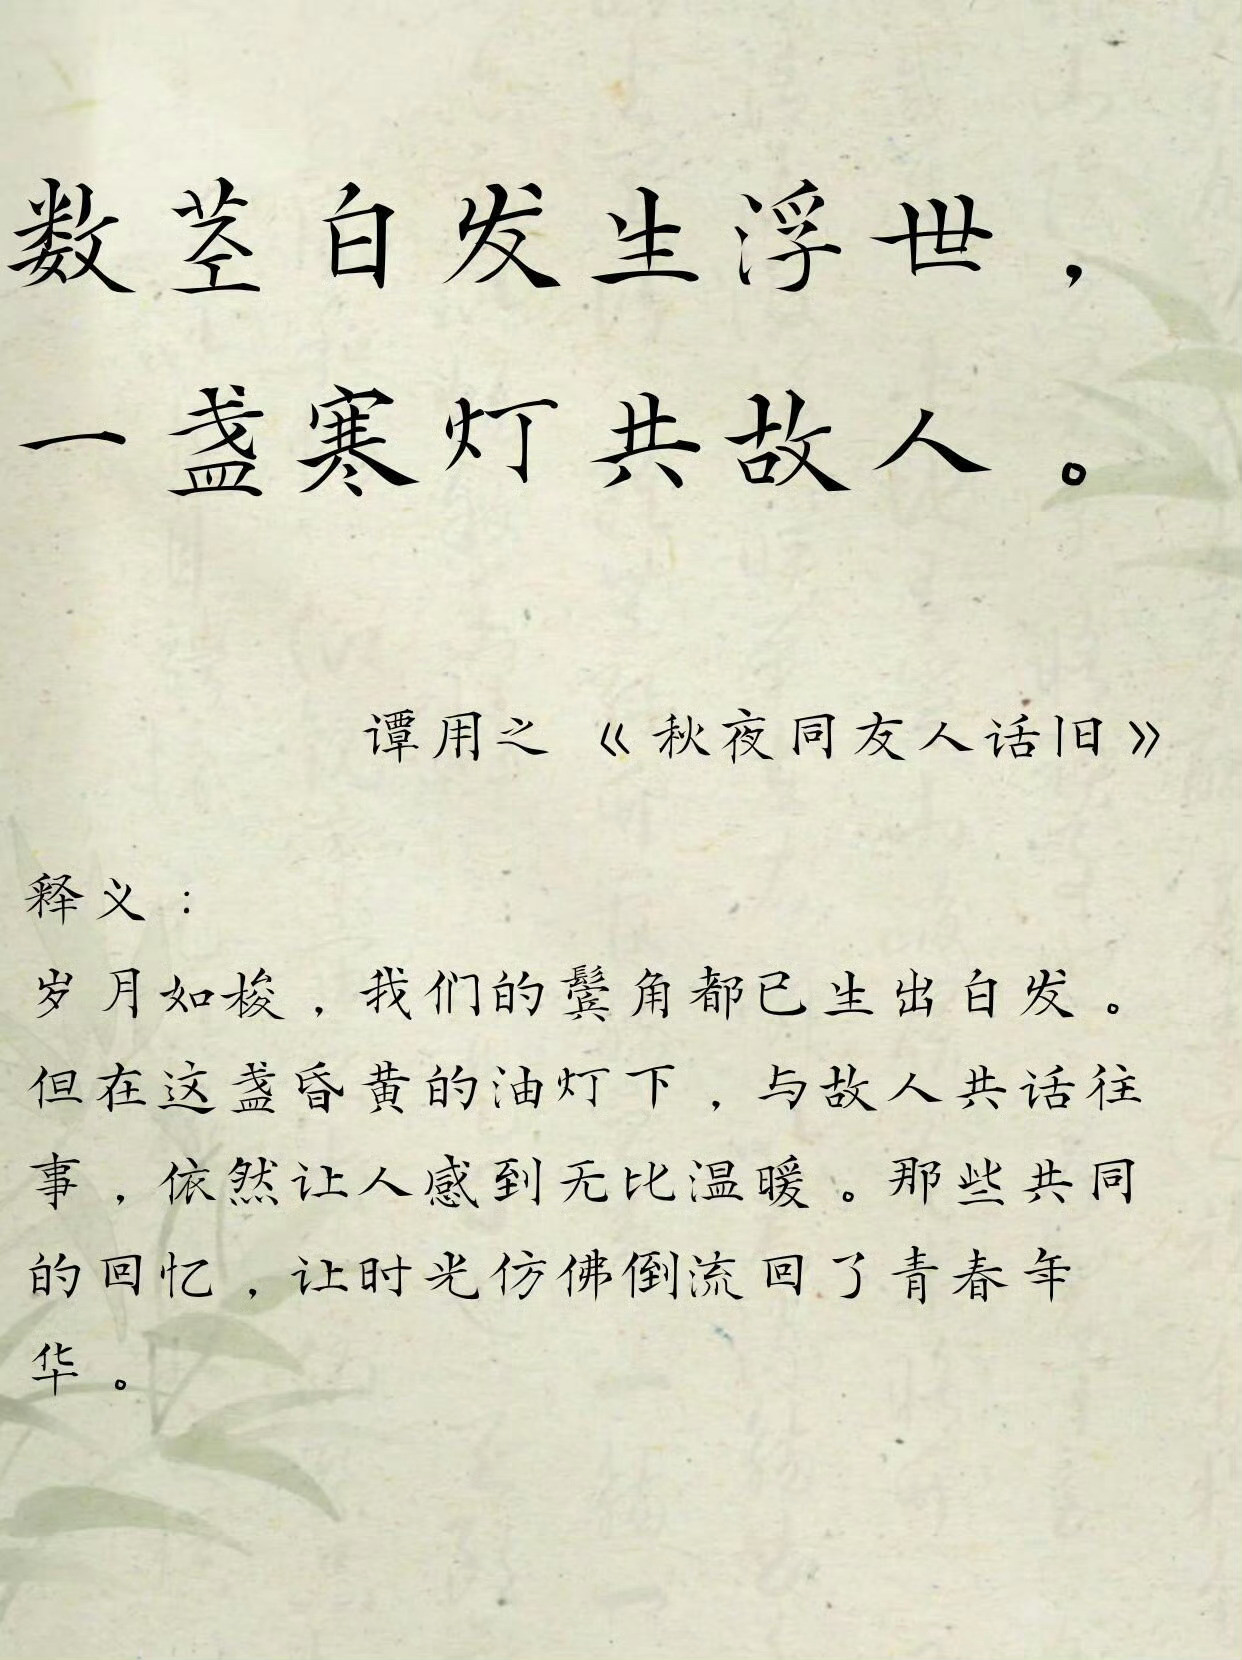 数茎白发生浮世，
一盏寒灯共故人。
谭用之《秋夜同友人话旧》
释义：
岁月如梭，我们的鬓角都已生出白发。
但在这盏昏黄的油灯下，与故人共话往
事，依然让人感到无比温暖。那些共同
的回忆，让时光仿佛倒流回了青春年
华。